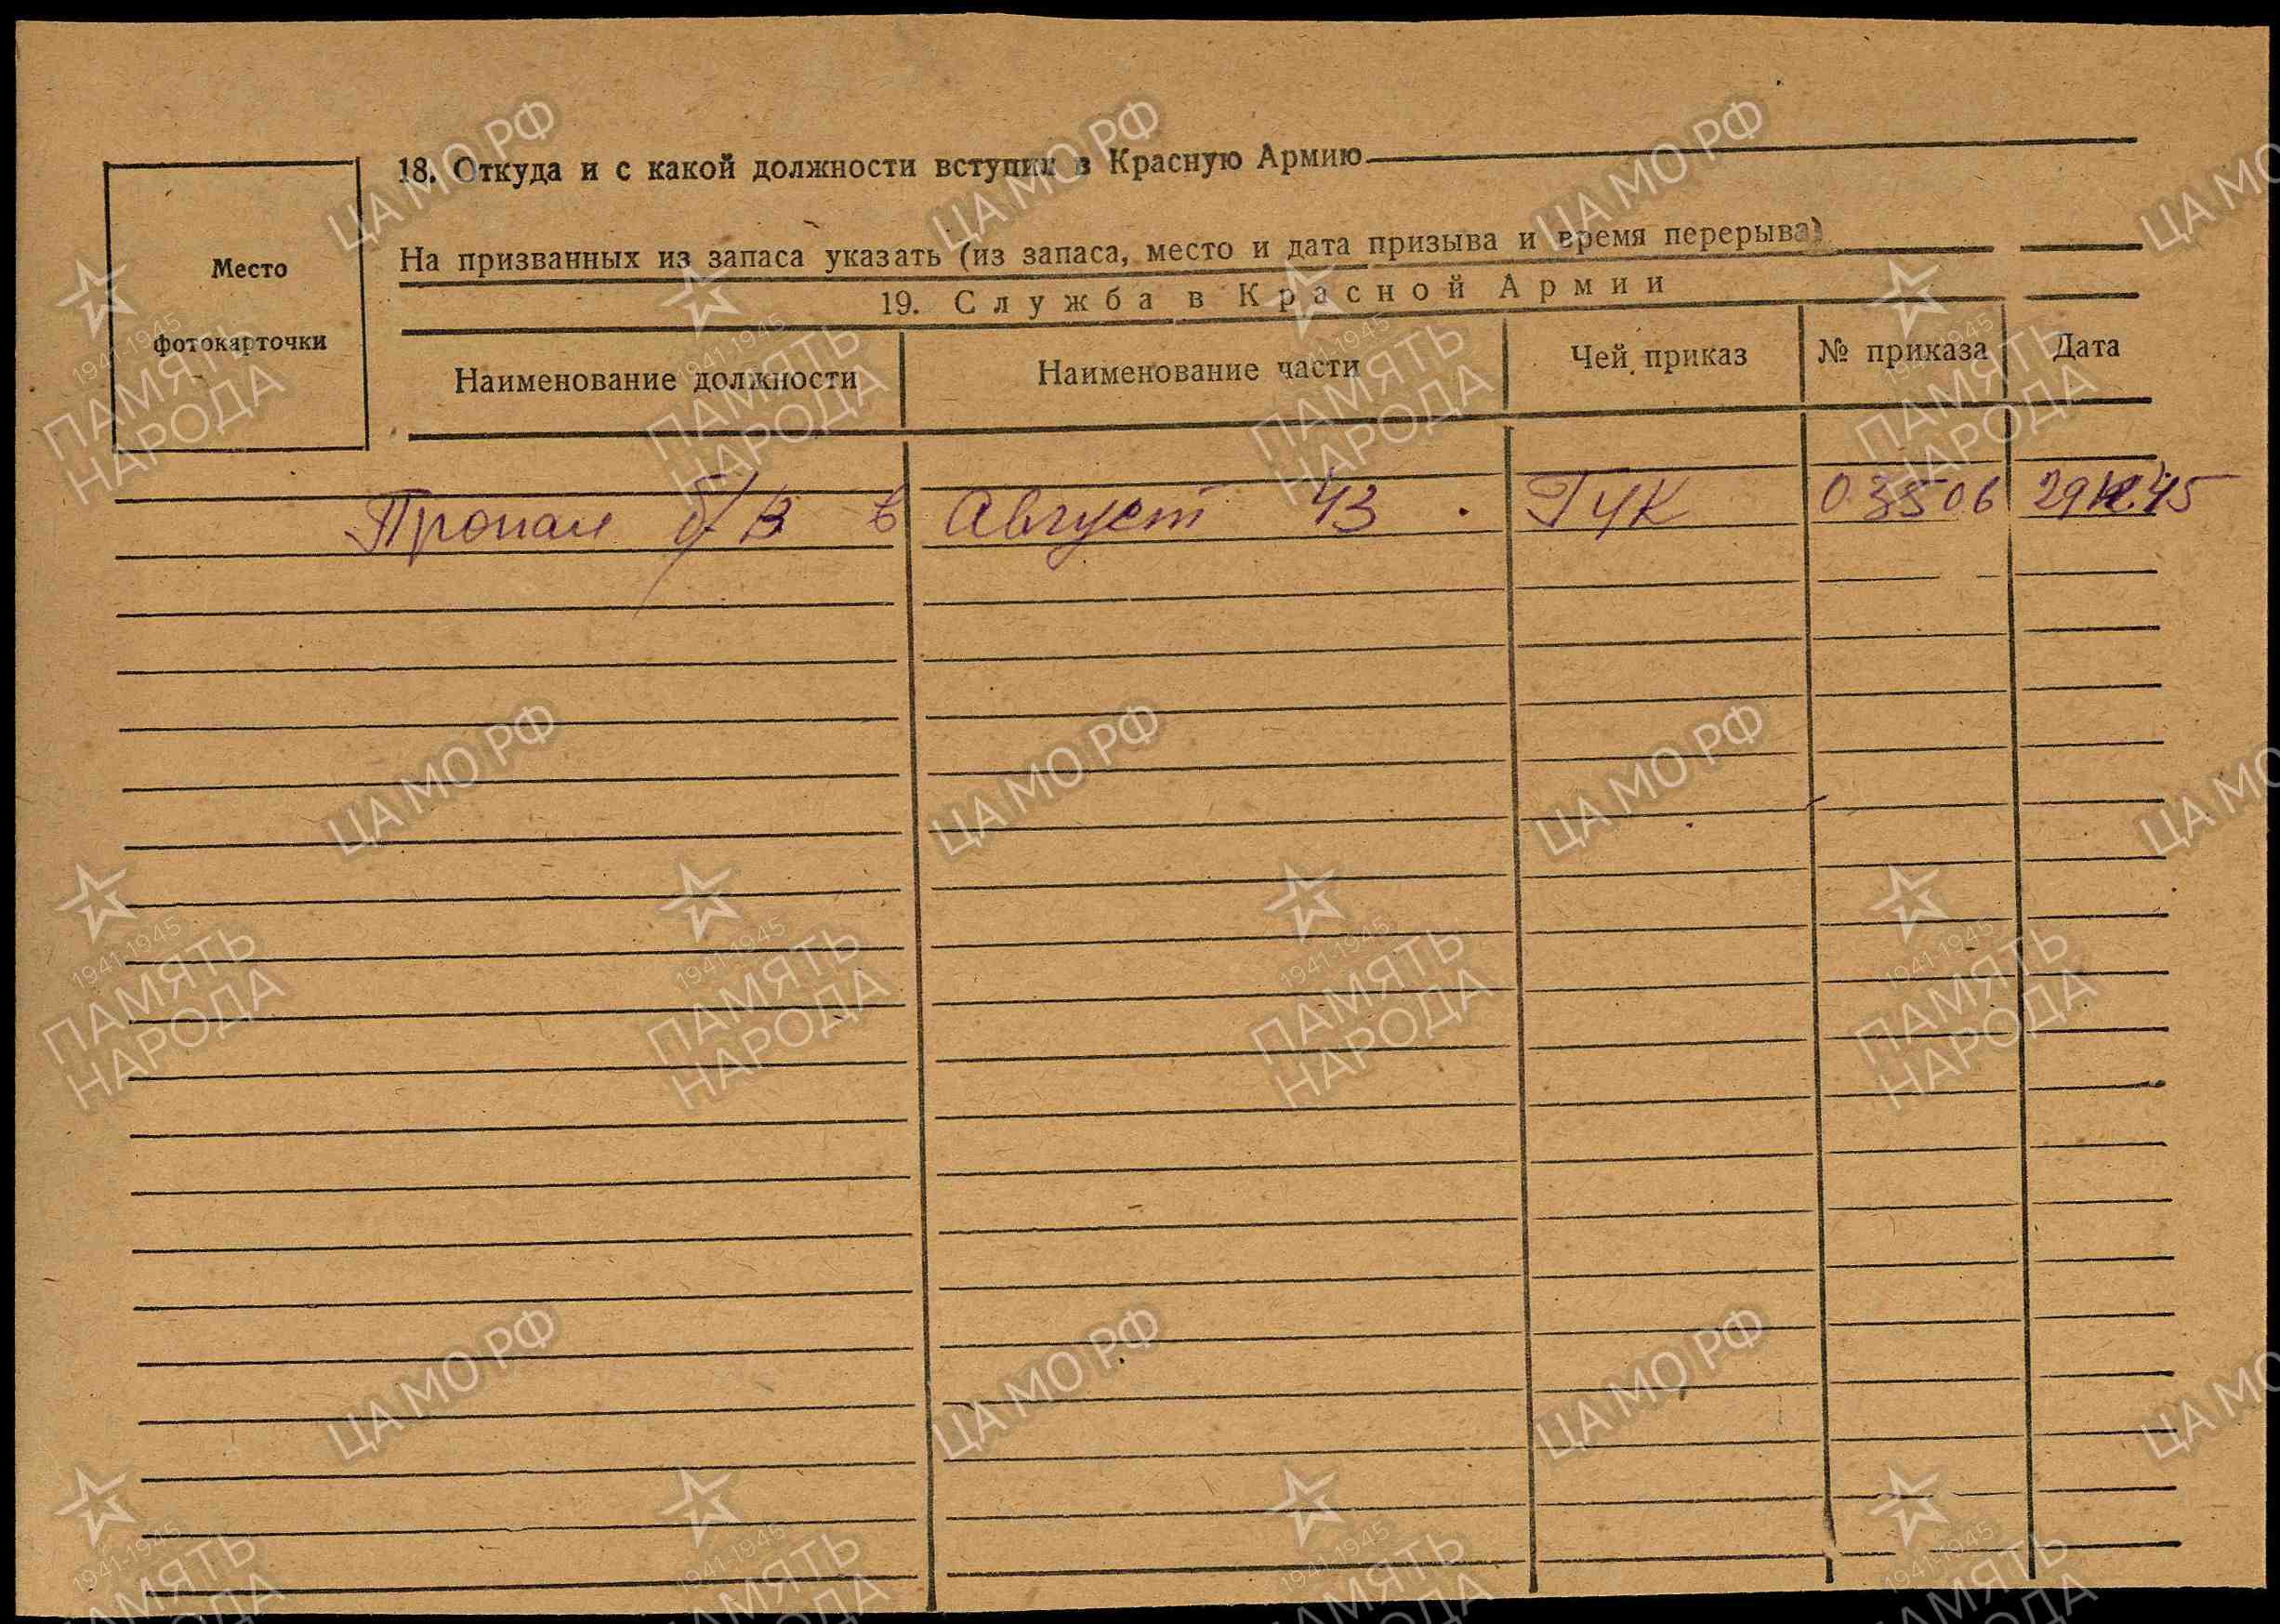 18. Откуда и с какой должности вступил в Красную Армию
Место
фотокарточки
На призванных из запаса указать (из запаса, место и дата призыва и время перерыва)
19. Служба в Красной Армии
Наименование должности Наименование части Чей приказ № приказа Дата
Пропал б/в в Август 43. ГУК 03506 29.12.45
ЦА МО РФ
1941-1945
ПАМЯТЬ
НАРОДА